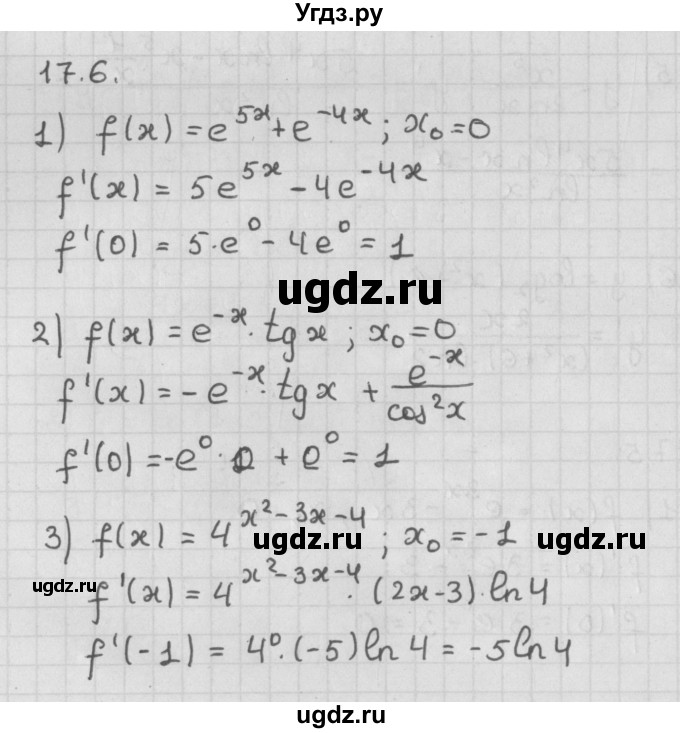 Угдз.ру
17.6.
1) f(x) = e^{5x} + e^{-4x}; x₀ = 0
f'(x) = 5e^{5x} - 4e^{-4x}
f'(0) = 5·e⁰ - 4e⁰ = 1
ugdz.ru
2) f(x) = e^{-x}·tg x; x₀ = 0
f'(x) = -e^{-x}·tg x + e^{-x}/cos²x
f'(0) = -e⁰·0 + e⁰ = 1
3) f(x) = 4^{x²-3x-4}; x₀ = -1
ugdz.ru ugdz.ru
ugdz.ru
f'(x) = 4^{x²-3x-4}·(2x-3)·ln4
f'(-1) = 4⁰·(-5)ln4 = -5ln4
ugdz.ru
ugdz.ru